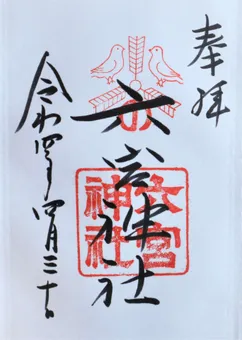 奉拝
六宮神社
六宮
神社
令和四年四月三十日